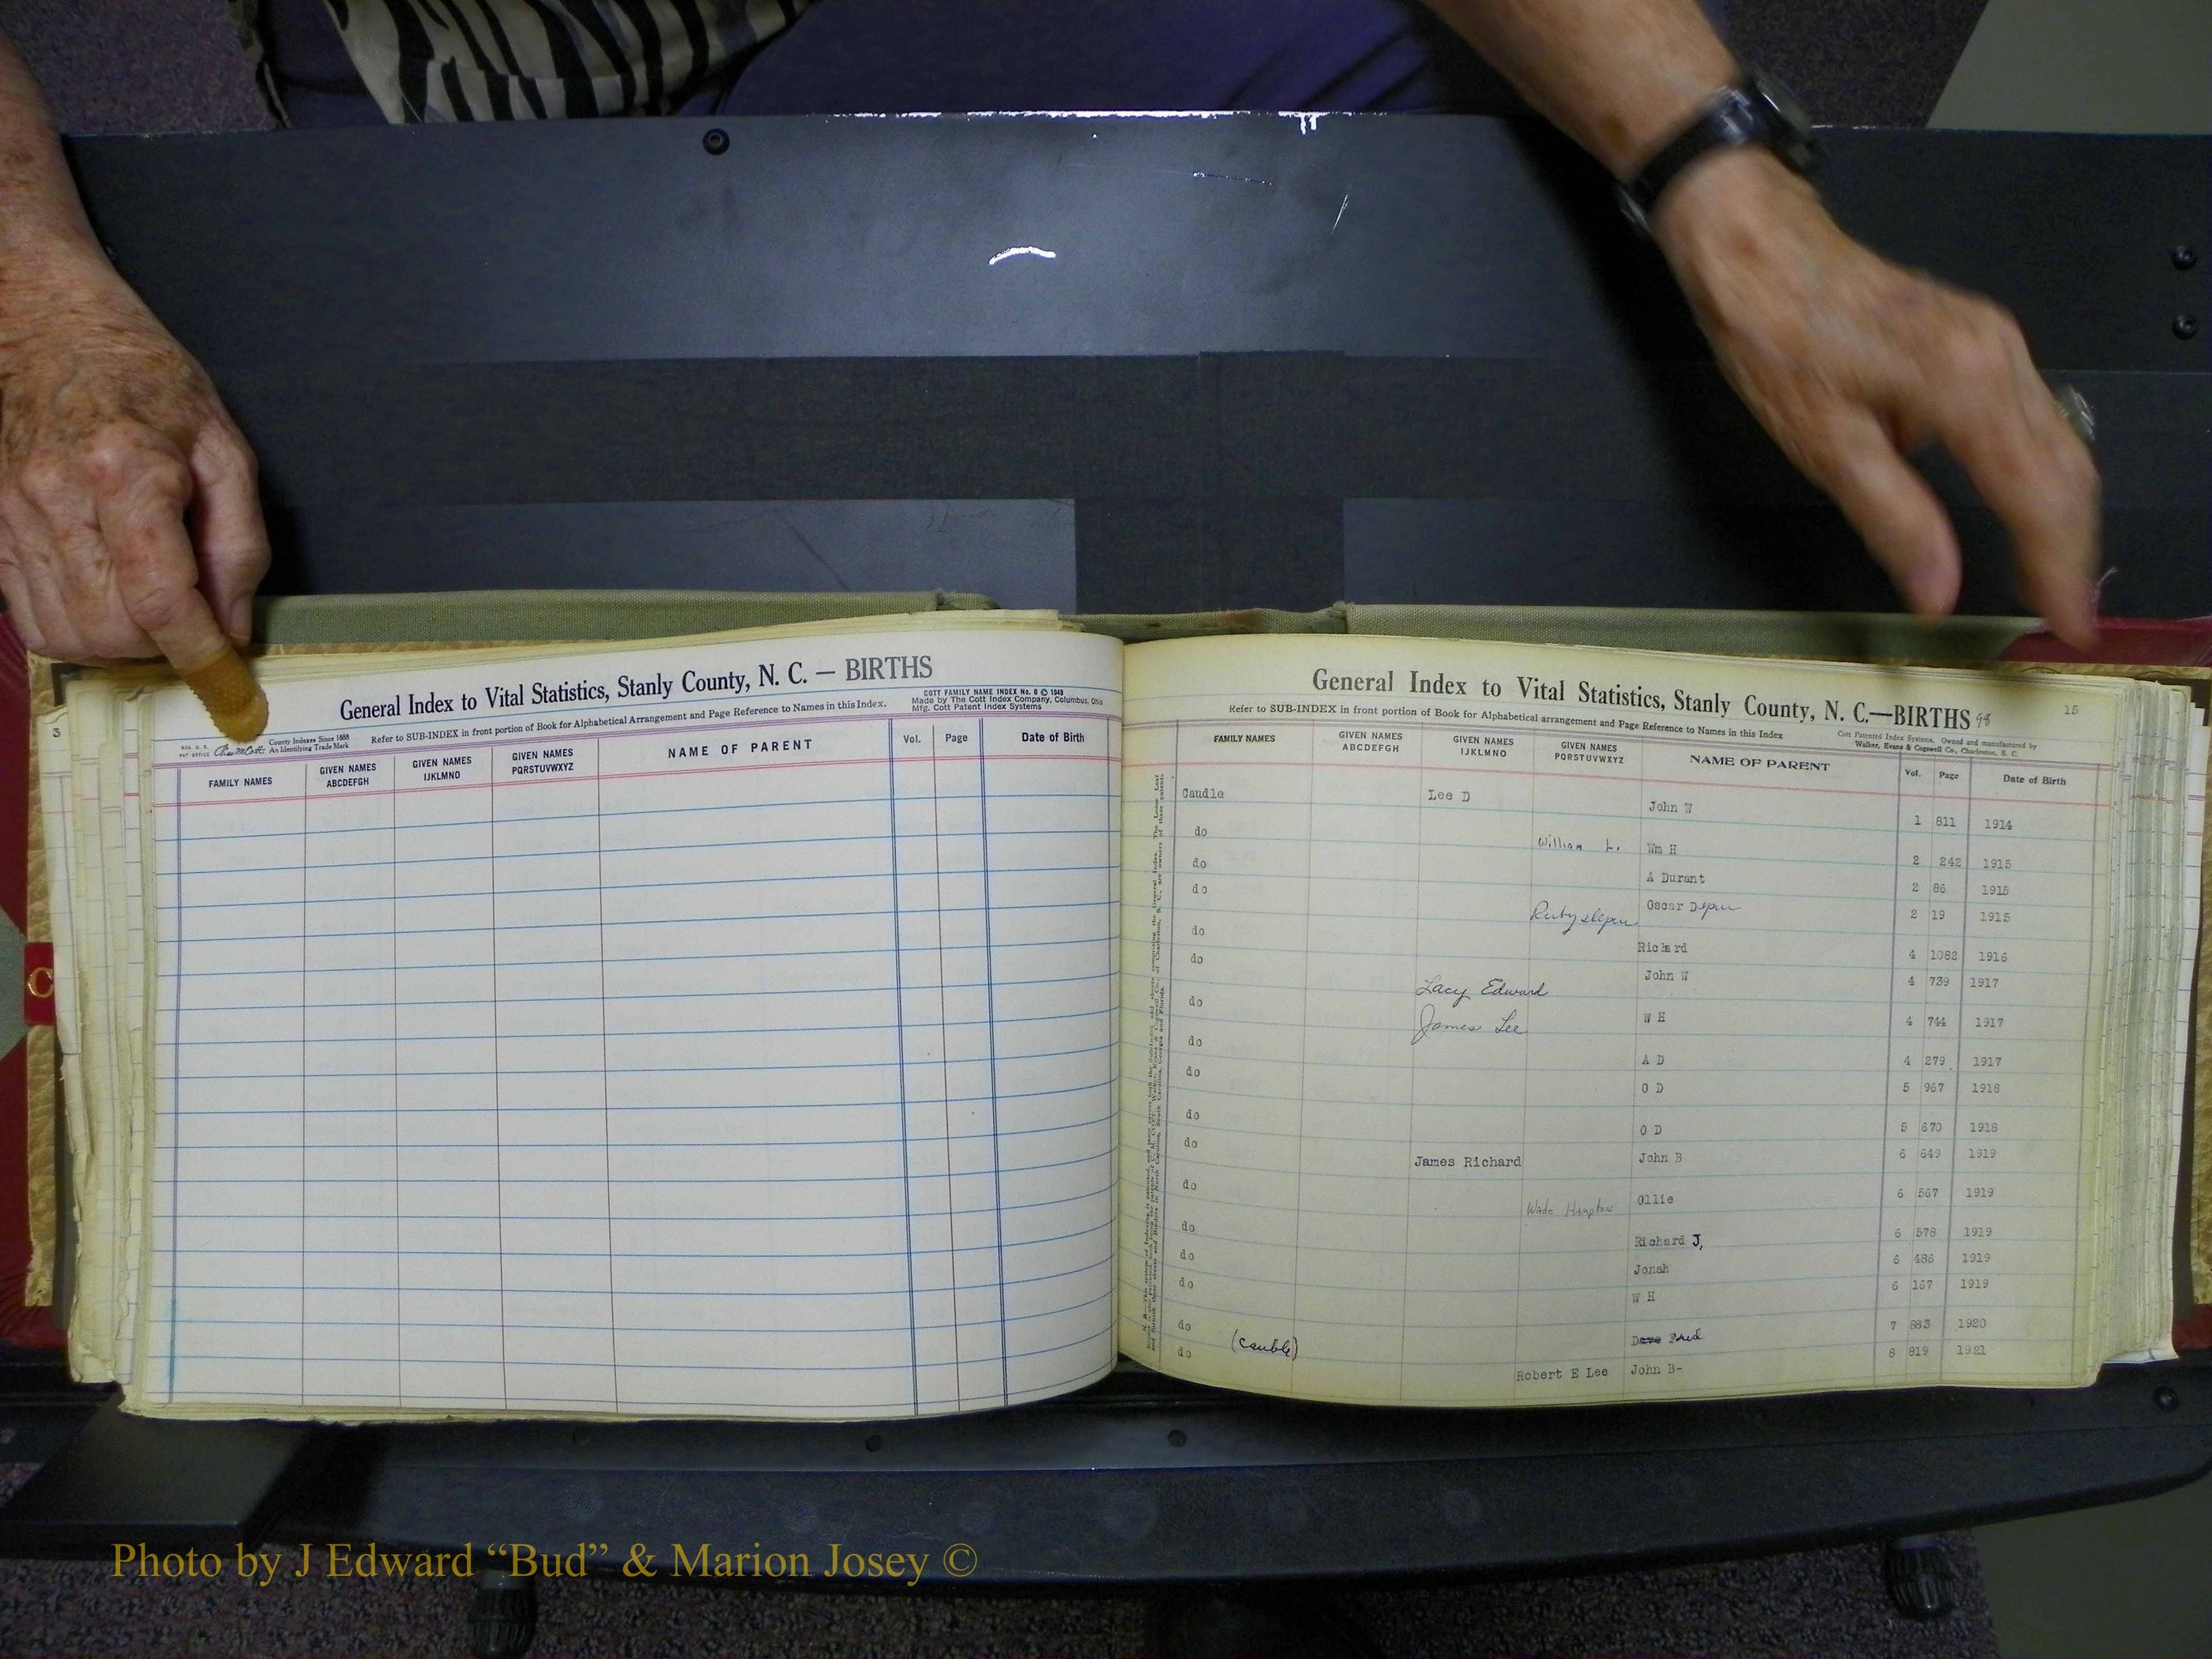 General Index to Vital Statistics, Stanly County, N. C. — BIRTHS
COTT FAMILY NAME INDEX No. 0 © 1949
Made by The Cott Index Company, Columbus, Ohio
Mfg. Cott Patent Index Systems
County Indexes Since 1888
An Identifying Trade Mark
Refer to SUB-INDEX in front portion of Book for Alphabetical Arrangement and Page Reference to Names in this Index.
FAMILY NAMES GIVEN NAMES ABCDEFGH GIVEN NAMES IJKLMNO GIVEN NAMES PQRSTUVWXYZ NAME OF PARENT Vol. Page Date of Birth
3
C
General Index to Vital Statistics, Stanly County, N. C.—BIRTHS 98 15
Refer to SUB-INDEX in front portion of Book for Alphabetical arrangement and Page Reference to Names in this Index
Cott Patented Index Systems, Owned and manufactured by
Walker, Evans & Cogswell Co., Charleston, S. C.
FAMILY NAMES GIVEN NAMES ABCDEFGH GIVEN NAMES IJKLMNO GIVEN NAMES PQRSTUVWXYZ NAME OF PARENT Vol. Page Date of Birth
Caudle Lee D John W 1 811 1914
do William L. Wm H 2 242 1915
do A Durant 2 86 1915
do Ruby Oscar 2 19 1915
do Richard 4 1082 1916
do Lacy Edward John W 4 739 1917
do James Lee W H 4 744 1917
do A D 4 279 1917
do O D 5 967 1918
do O D 5 670 1918
do James Richard John B 6 649 1919
do Wade Hampton Ollie 6 567 1919
do Richard J, 6 578 1919
do Jonah 6 486 1919
do W H 6 167 1919
do Dave 7 883 1920
do (Cauble) Robert E Lee John B- 8 819 1921
Photo by J Edward “Bud” & Marion Josey ©